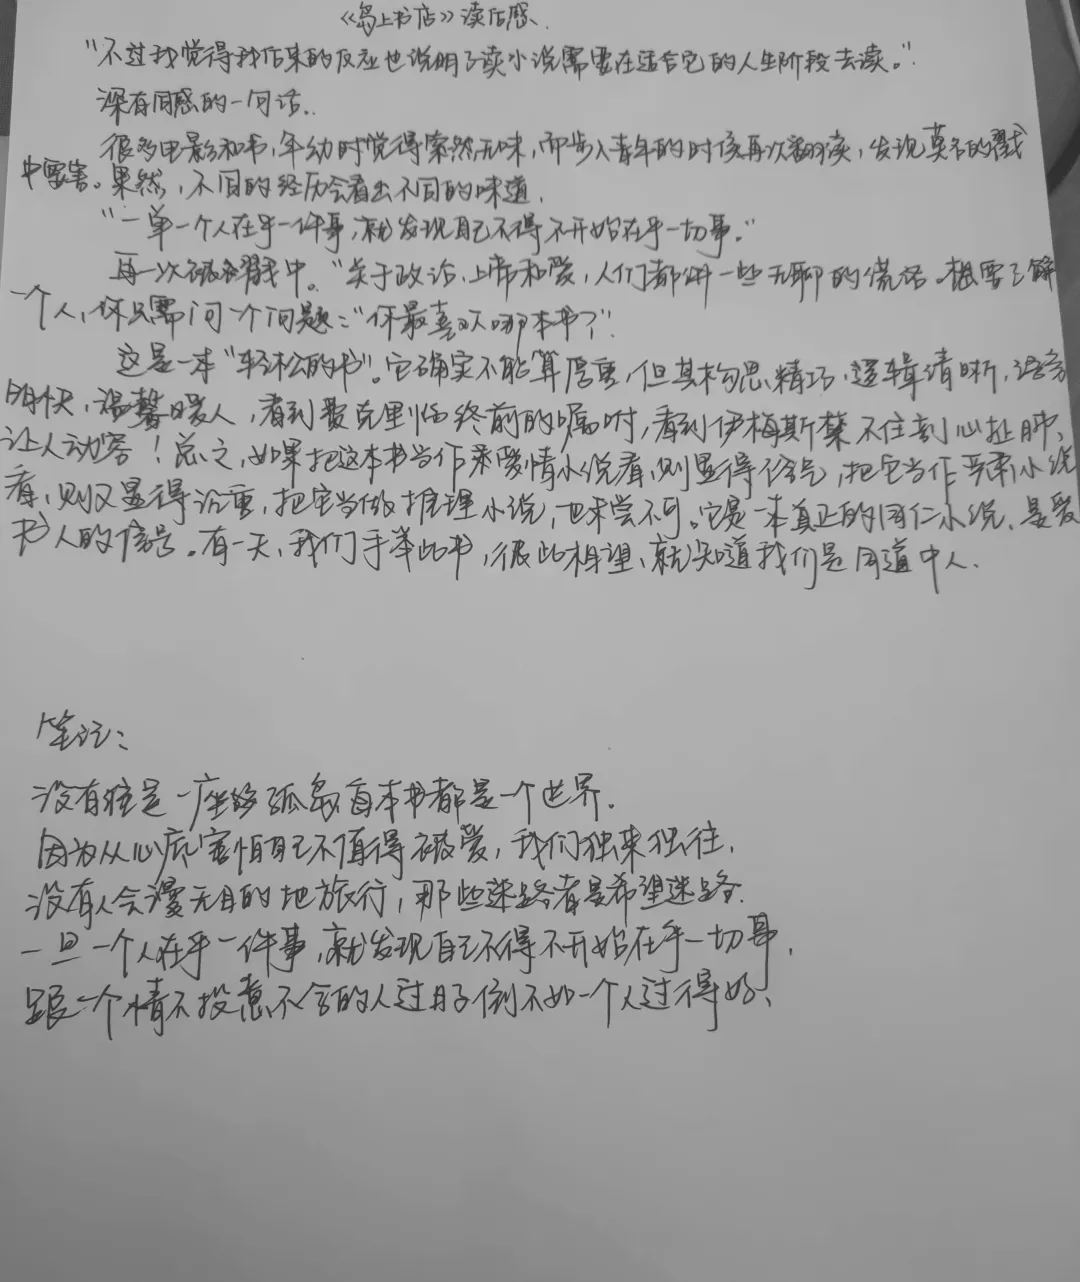 《岛上书店》读后感、
"不过我觉得我后来的反应也说明了读小说需要在适合它的人生阶段去读。"
深有同感的一句话.
很多电影和书,年幼时觉得索然无味,而步入青年的时候再次翻读,发现莫名的戳
中要害。果然,不同的经历会看出不同的味道.
"一单一个人在乎一件事,就发现自己不得不开始在乎一切事。"
再一次被戳中。"关于政治,上帝和爱,人们都讲一些无聊的谎话。想要了解
一个人,你只需问一个问题:"你最喜欢哪本书?"
这是一本"轻松的书"。它确实不能算厚重,但其构思精巧,逻辑清晰,语言
明快,温馨暖人,看到费克里临终前的嘱咐,看到伊梅斯禁不住刻心扯肺、
让人动容!总之,如果把这本书当作爱情小说看,则显得俗气,把它当作严肃小说
看,则又显得沉重,把它当做推理小说,也未尝不可。它是一本真正的同仁小说、是爱
书人的信号。有一天,我们手举此书,彼此相望、就知道我们是同道中人.
笔记:
没有谁是一座孤岛,每本书都是一个世界.
因为从心底害怕自己不值得被爱,我们独来独往.
没有人会漫无目的地旅行,那些迷路者是希望迷路.
一旦一个人在乎一件事,就发现自己不得不开始在乎一切事.
跟一个情不投意不合的人过日子倒不如一个人过得好、